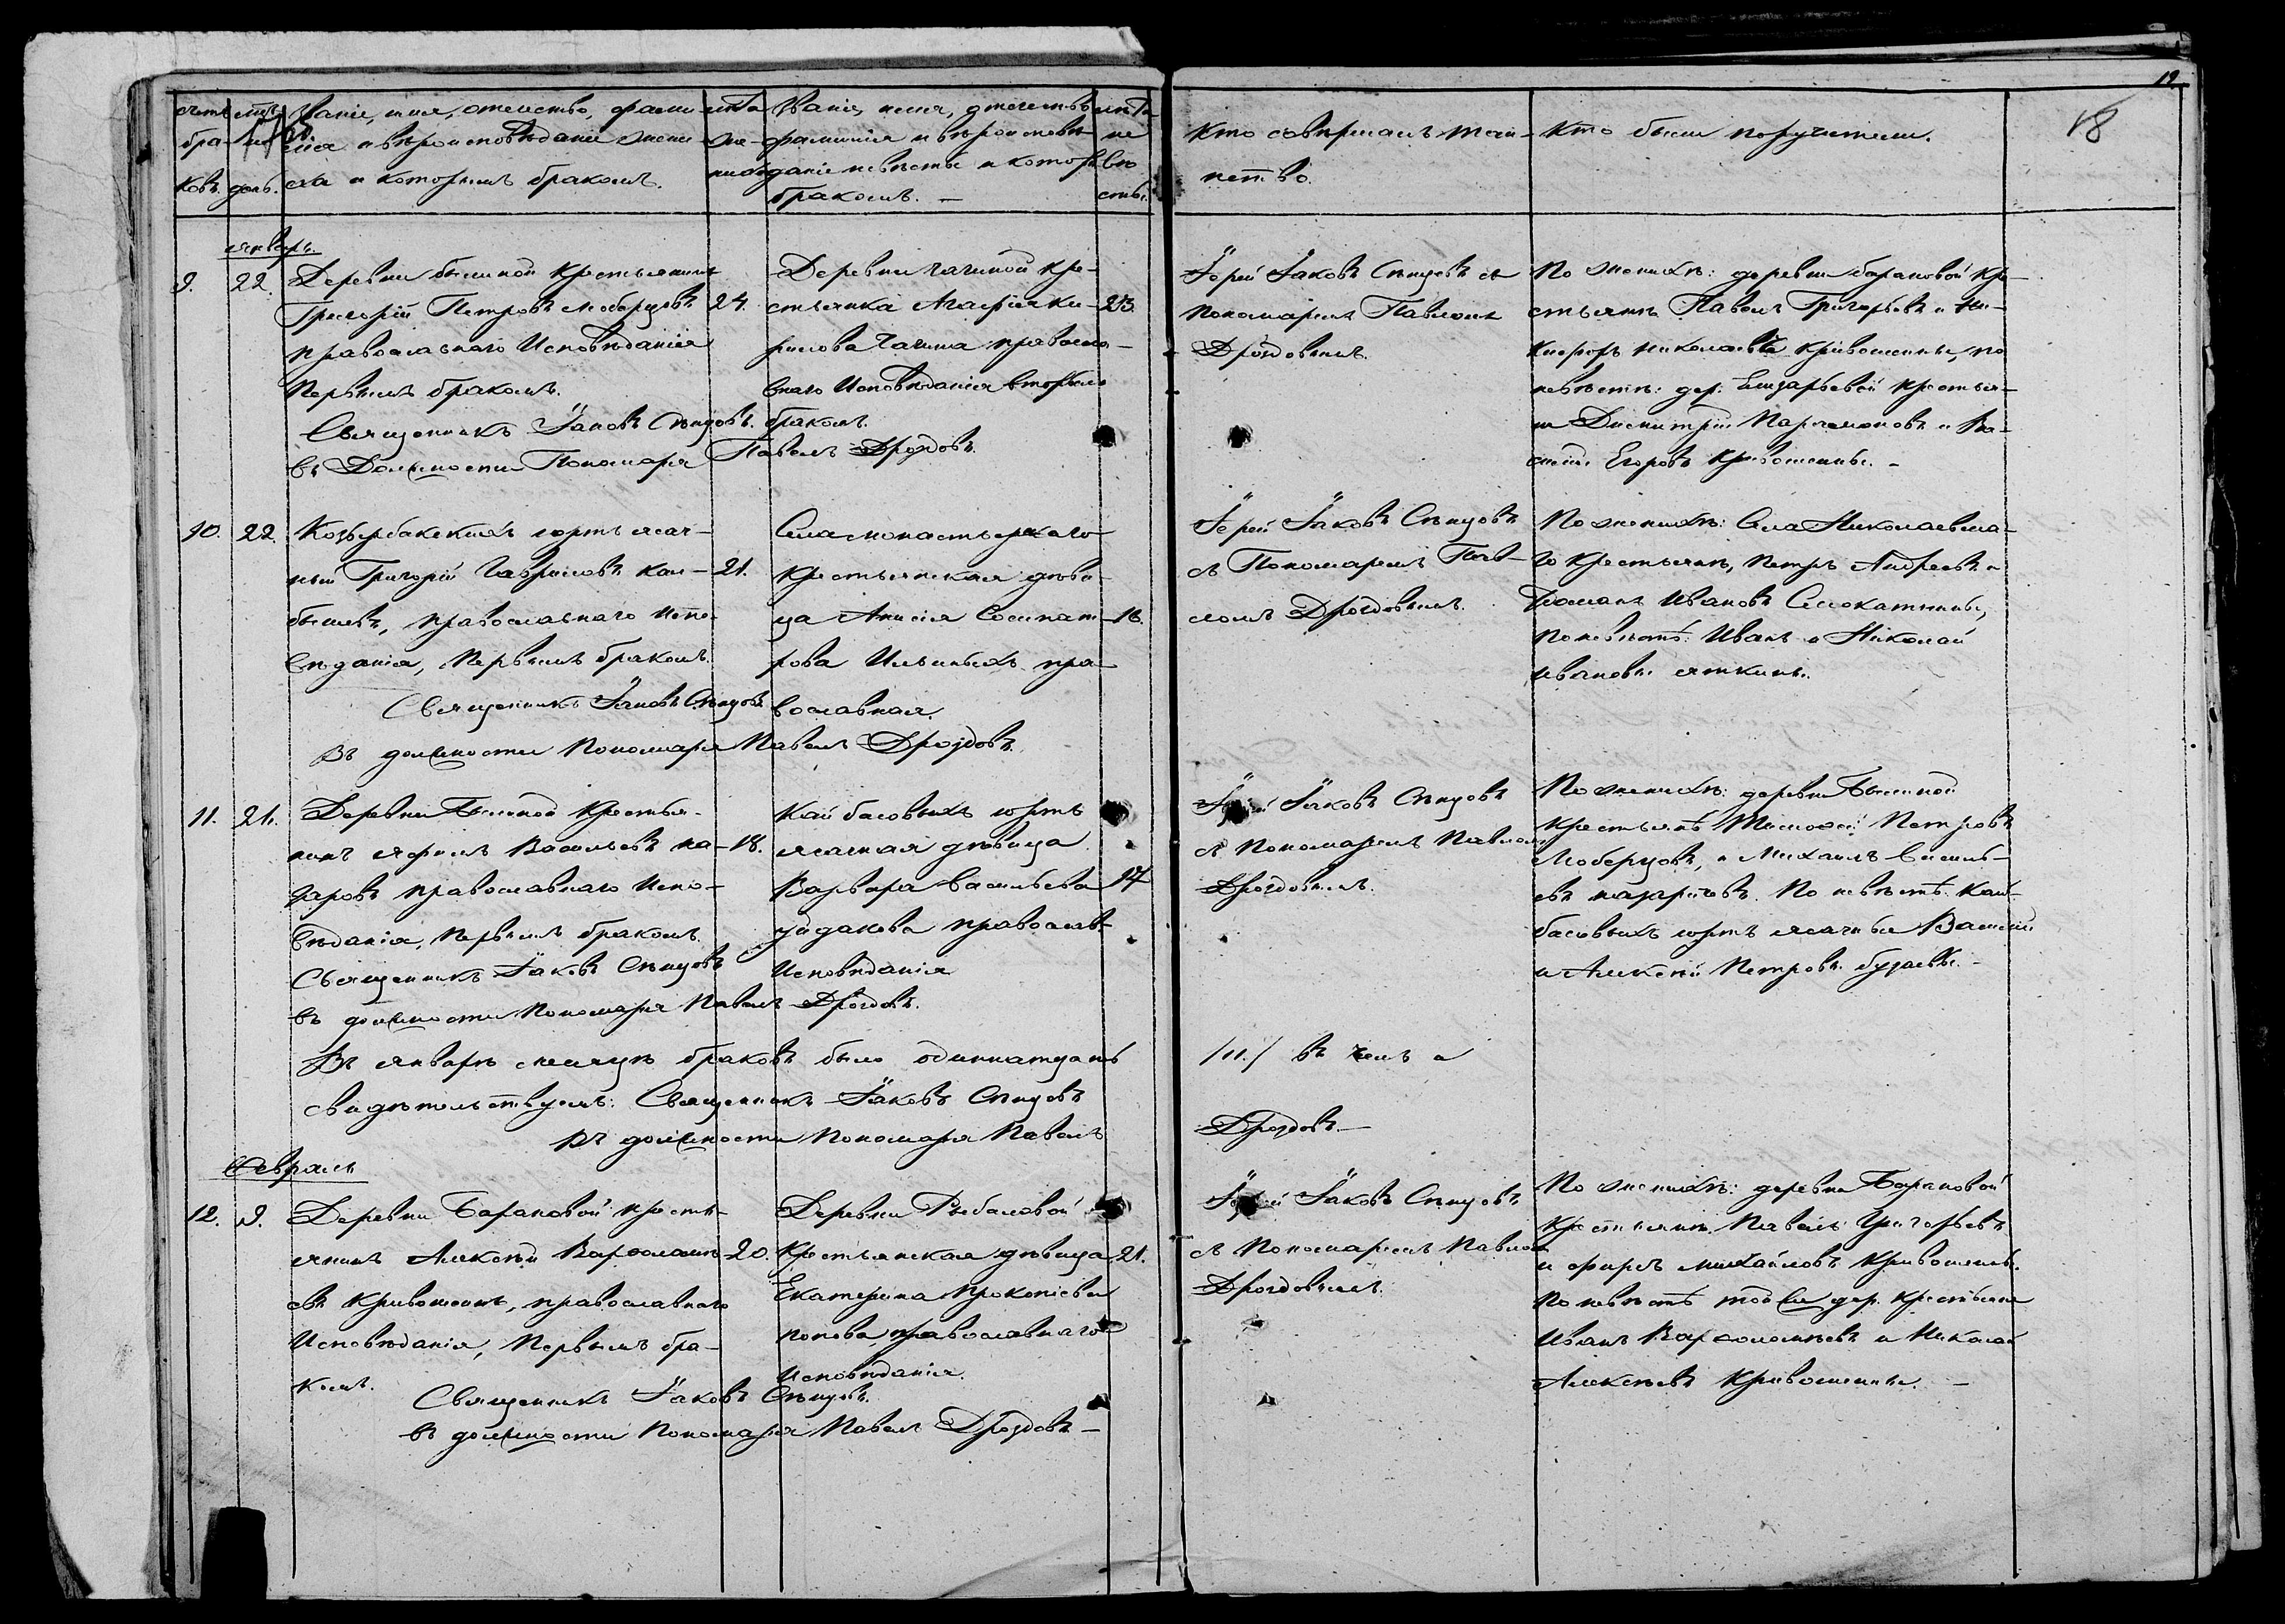 19
18
счетъ
бра-
ковъ
день.
Званіе, имя, отечество, фами-
лія и вѣроисповѣданіе жени-
ха и которымъ бракомъ.
лѣта
же-
ниха
Званіе, имя, отечество
фамилія и вѣроисповѣ-
даніе невѣсты и которы
бракомъ. —
лѣта
не
вѣ
сты.
Кто совершалъ таин-
ство.
Кто были поручители.
январь.
9. 22.
Деревни Былиной крестьянинъ
Григорій Петровъ 24.
православнаго Исповѣданія
Первымъ бракомъ.
Священникъ Іаковъ Сѣнцовъ.
въ Должности Пономаря Павелъ Дроздовъ.
Деревни Чагиной кре-
стьянка Агафія Ки- 23.
рилова Чагина правосла-
внаго Исповѣданія вторымъ
бракомъ.
Іерей Іаковъ Сѣнцовъ съ
пономаремъ Павломъ
Дроздовымъ.
По женихѣ: деревни Барановой кре-
стьяне Павелъ Григорьевъ и Ни-
кифоръ Николаевъ Кривошеины, по
невѣстѣ: дер. Елизарьевой крестья-
не Димитрій Парѳеновъ и Ва-
силій Егоровъ Кривошеины. —
10. 22.
юртъ ясач-
ный Григорій Гавриловъ Кал- 21.
православнаго Испо-
вѣданія, Первымъ бракомъ.
Священникъ Іаковъ Сѣнцовъ
въ должности Пономаря Павелъ Дроздовъ.
Села монастырскаго
Крестьянская дѣви-
ца Анисія Сосипат- 18.
рова Ильиныхъ пра-
вославная.
Іерей Іаковъ Сѣнцовъ
съ Пономаремъ Пав-
ломъ Дроздовымъ.
По женихѣ: Села Николаевска-
го крестьяне, Петръ Андреевъ и
Романъ Ивановъ
По невѣстѣ: Иванъ и Николай
Ивановы
11. 21.
Деревни Былиной Крестья-
нинъ Васильевъ На- 18.
заровъ православнаго Испо-
вѣданія, первымъ бракомъ.
Священникъ Іаковъ Сѣнцовъ
въ должности Пономаря Павелъ Дроздовъ.
Кайбасовыхъ юртъ
ясачная дѣвица
Варвара Васильева 17
православ-
Исповѣданія
Іерей Іаковъ Сѣнцовъ
съ Пономаремъ Павломъ
Дроздовымъ.
По женихѣ: деревни Былиной
крестьяне Тимоѳей Петровъ
и Михаилъ Василь-
евъ По невѣстѣ: Кай-
басовыхъ юртъ ясачные Василій
и Алексѣй Петровы
Въ январѣ мѣсяцѣ браковъ было одиннатцать /11./ въ чемъ и
свидѣтельствуемъ: Священникъ Іаковъ Сѣнцовъ
въ должности Пономаря Павелъ Дроздовъ. —
Февраль
12. 9.
Деревни Барановой кресть-
янинъ Алексѣй Варѳоломѣ- 20.
евъ Кривошеинъ, православнаго
Исповѣданія, Первымъ бра-
комъ.
Священникъ Іаковъ Сѣнцовъ.
въ должности Пономаря Павелъ Дроздовъ —
Деревни Рыбаловой
Крестьянская дѣвица 21.
Екатерина Прокопіева
Попова, православнаго
Исповѣданія.
Іерей Іаковъ Сѣнцовъ
съ Пономаремъ Павломъ
Дроздовымъ.
По женихѣ: деревни Барановой
Крестьяне Павелъ Григорьевъ
и Михайловъ Кривошеины.
По невѣстѣ той же дер. крестьяне
Иванъ Варѳоломѣевъ и Николай
Алексѣевъ Кривошеины. —